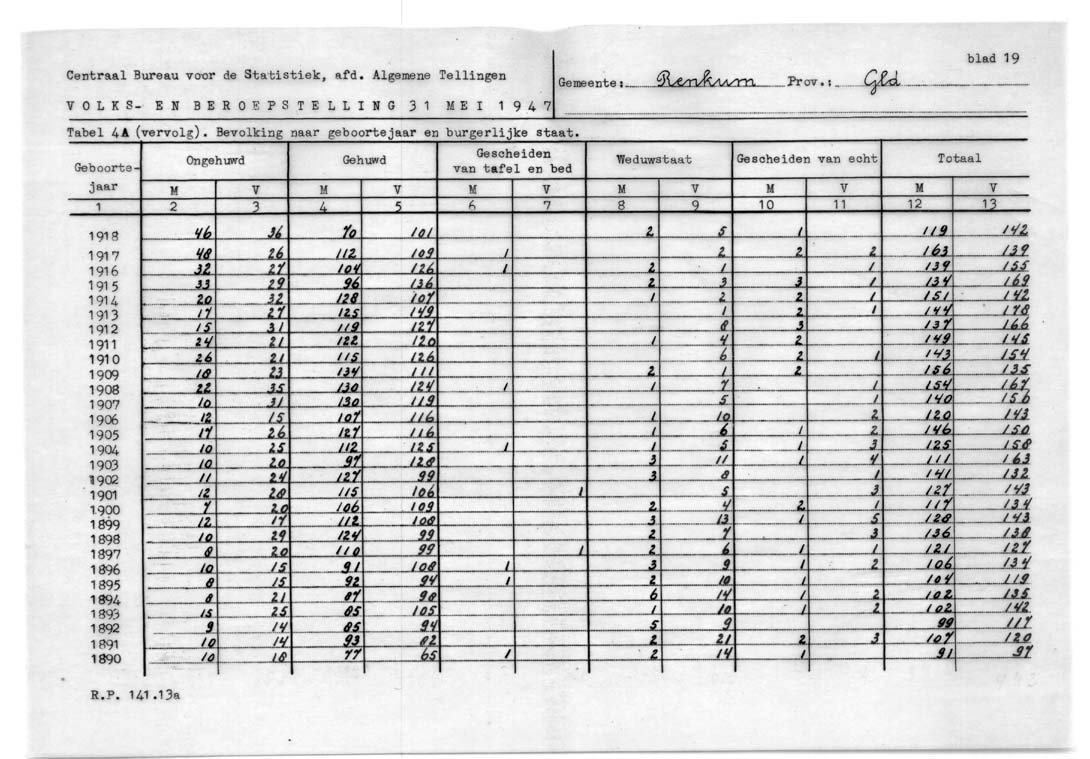 blad 19
Centraal Bureau voor de Statistiek, afd. Algemene Tellingen Gemeente: Renkum Prov.: Gld
VOLKS- EN BEROEPSTELLING 31 MEI 1947
Tabel 4A (vervolg). Bevolking naar geboortejaar en burgerlijke staat.
Geboorte- Ongehuwd Gehuwd Gescheiden van tafel en bed Weduwstaat Gescheiden van echt Totaal
jaar M V M V M V M V M V M V
1 2 3 4 5 6 7 8 9 10 11 12 13
1918 46 36 70 101 2 5 1 119 142
1917 48 26 112 109 1 2 2 2 163 139
1916 32 27 104 126 1 2 1 1 139 155
1915 33 29 96 136 2 3 3 1 134 169
1914 20 32 128 107 1 2 2 1 151 142
1913 17 27 125 149 1 2 1 144 178
1912 15 31 119 127 8 3 137 166
1911 24 21 122 120 1 4 2 149 145
1910 26 21 115 126 6 2 1 143 154
1909 18 23 134 111 2 1 2 156 135
1908 22 35 130 124 1 1 7 1 154 167
1907 10 31 130 119 5 1 140 156
1906 12 15 107 116 1 10 2 120 143
1905 17 26 127 116 1 6 1 2 146 150
1904 10 25 112 125 1 1 5 1 3 125 158
1903 10 20 97 128 3 11 1 4 111 163
1902 11 24 127 99 3 8 1 141 132
1901 12 28 115 106 1 5 3 127 143
1900 7 20 106 109 2 4 2 1 117 134
1899 12 17 112 108 3 13 1 5 128 143
1898 10 29 124 99 2 7 3 136 138
1897 8 20 110 99 1 2 6 1 1 121 127
1896 10 15 91 108 1 3 9 1 2 106 134
1895 8 15 92 94 1 2 10 1 104 119
1894 8 21 87 98 6 14 1 2 102 135
1893 15 25 85 105 1 10 1 2 102 142
1892 9 14 85 94 5 9 99 117
1891 10 14 93 82 2 21 2 3 107 120
1890 10 18 77 65 1 2 14 1 91 97
R.P. 141.13a